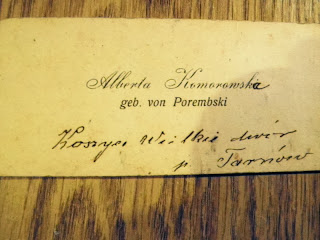 Alberta Komorowska
geb. von Porembski
Koszyce Wielkie dwór
p. Tarnów